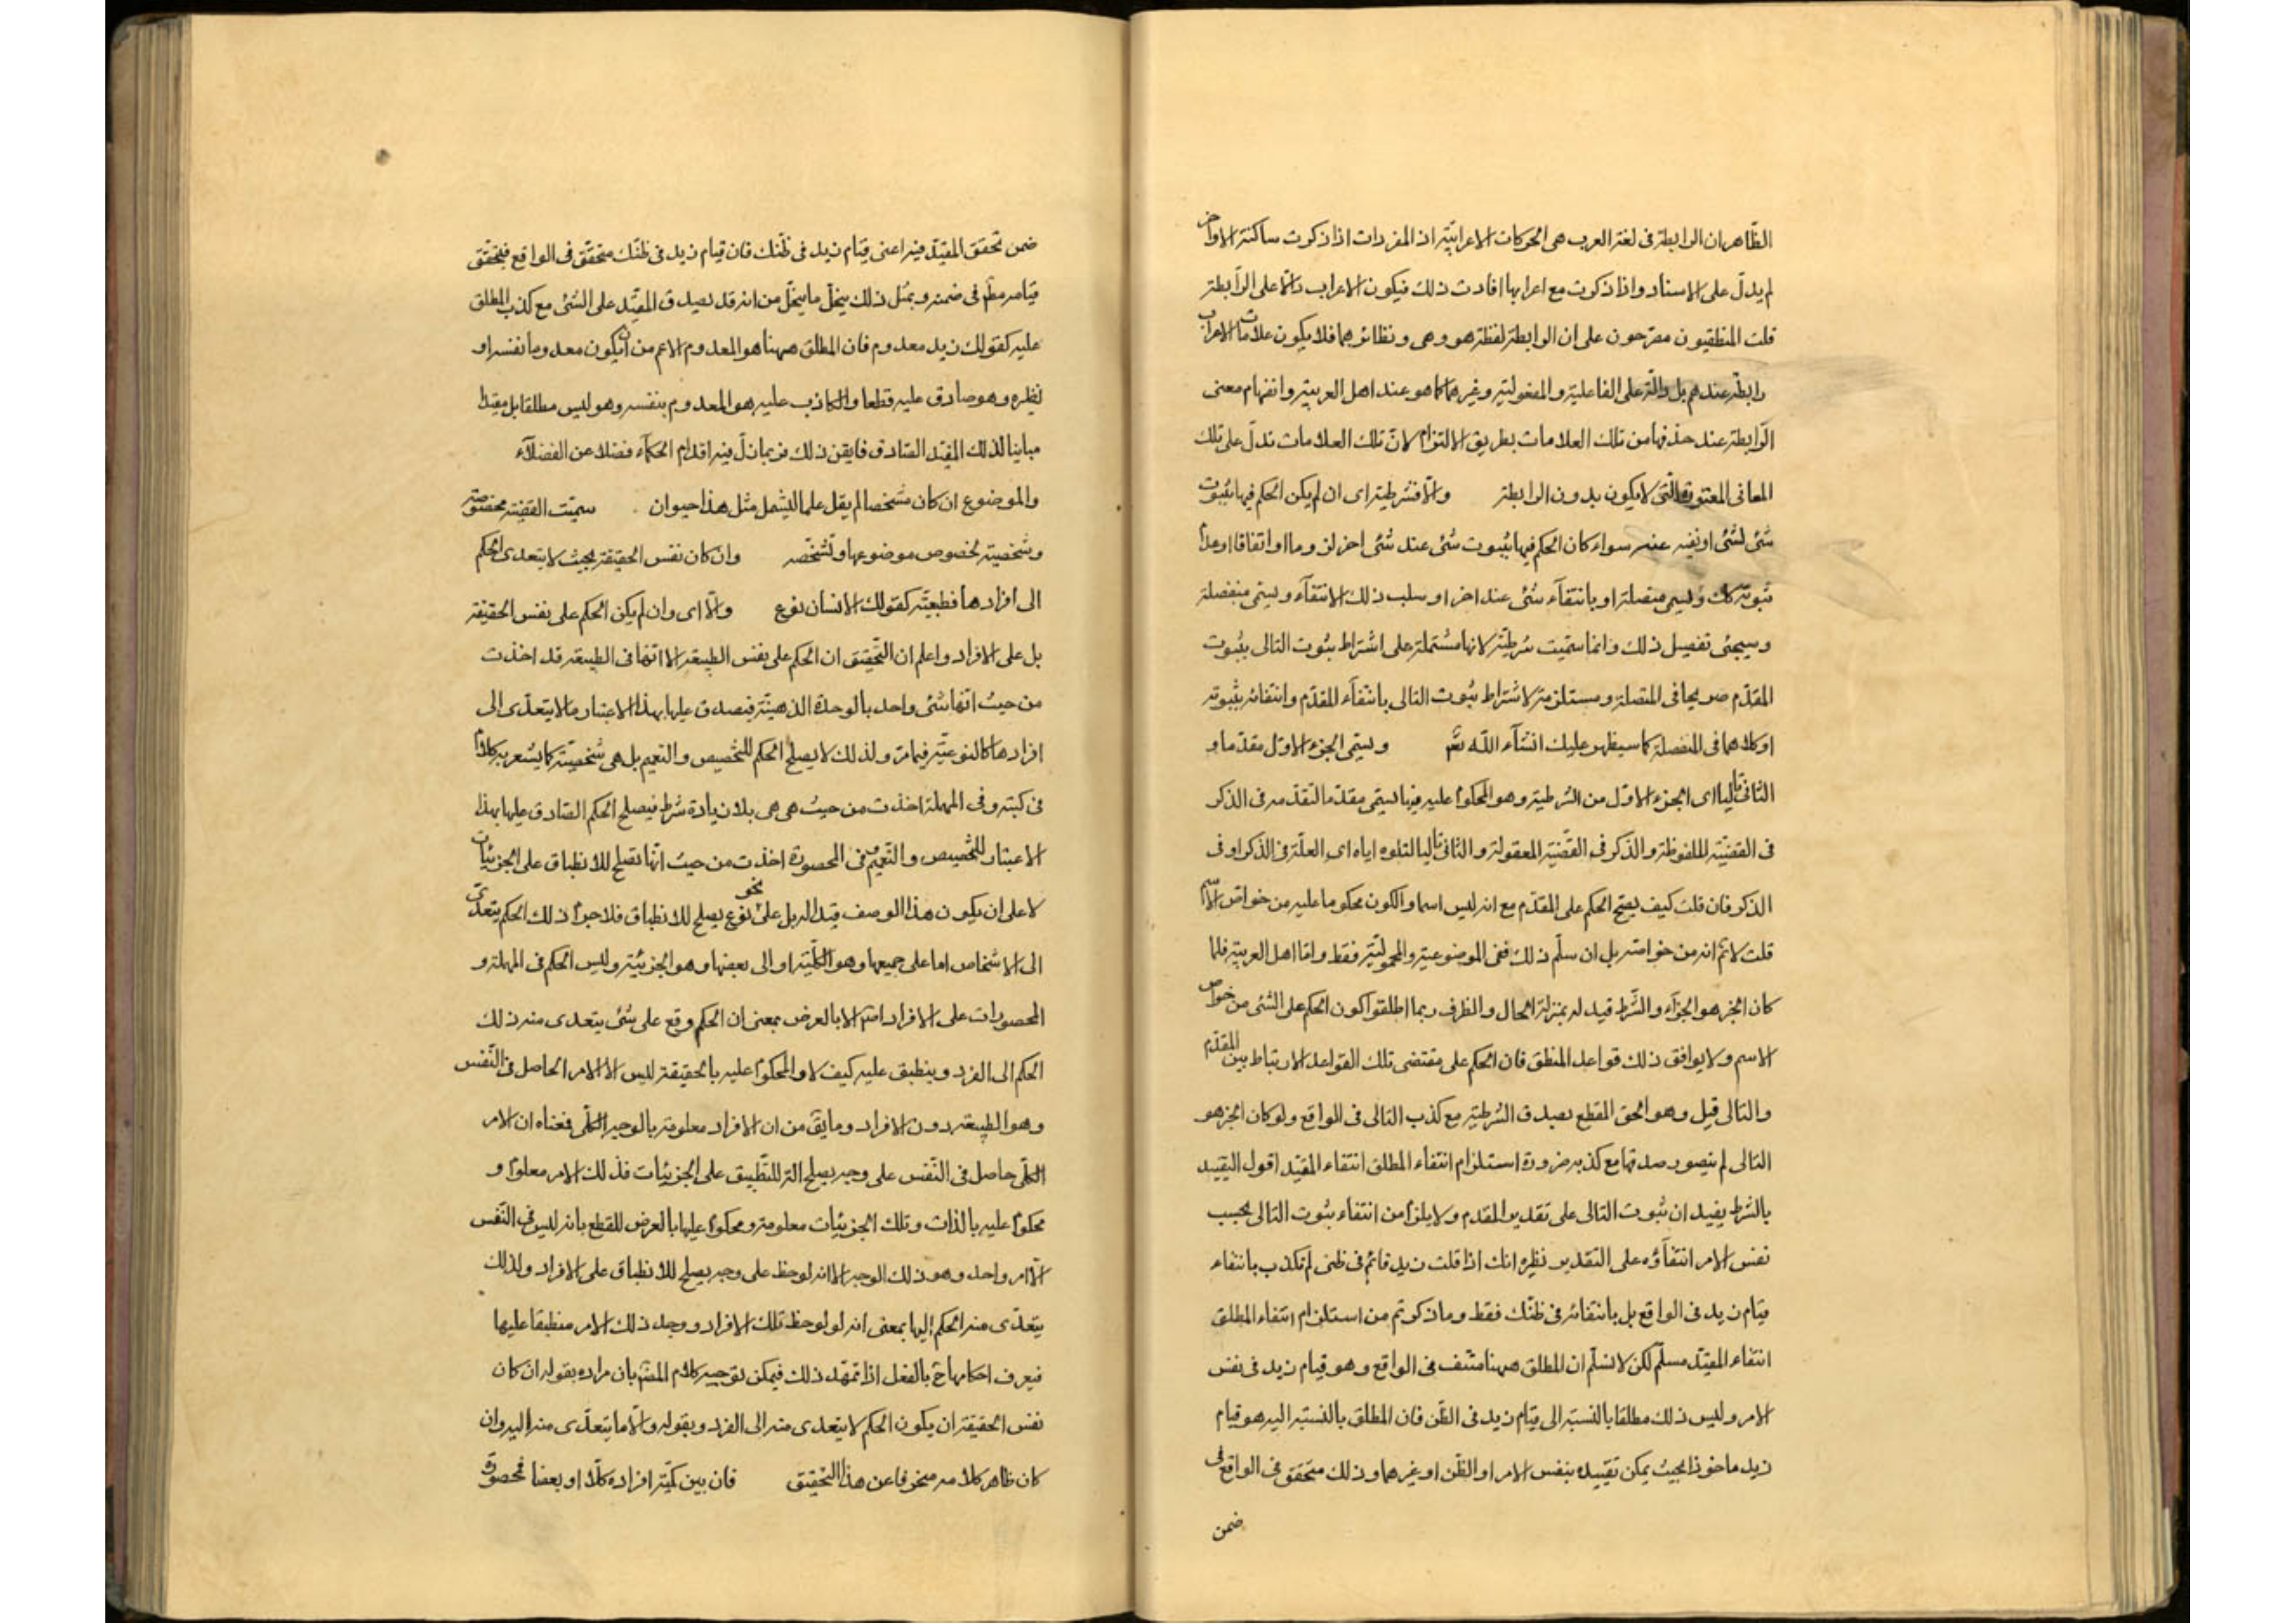 الظاهر ان الرابطة فى لغة العرب هى الحركات الاعرابية اذ المفردات اذا ذكرت ساكنة الاواخر
لم يدل على الاسناد واذا ذكرت مع اعرابها افادت ذلك فيكون الاعراب دالا على الرابطة
قلت المنطقيون مصرحون على ان الرابطة لفظة هو وهى ونظائرهما فلا يكون علامات الاعراب
رابطة عندهم بل دالة على الفاعلية والمفعولية وغيرهما كما هو عند اهل العربية وانفهام معنى
الرابطة عند حذفها من تلك العلامات بطريق الالتزام لان تلك العلامات تدل على تلك
المعانى المعتورة التى لا يكون بدون الرابطة والا فشرطية اى ان لم يكن الحكم فيها بثبوت
شئ لشئ او نفيه عنه سواء كان الحكم فيها بثبوت شئ عند شئ اخر لزوما او اتفاقا او عدم
ثبوته كك وتسمى متصلة او بانتفاء شئ عند اخر او سلب ذلك الانتفاء ويسمى منفصلة
وسيجئ تفصيل ذلك وانما سميت شرطية لانها مشتملة على اشتراط ثبوت التالى بثبوت
المقدم صريحا فى المتصلة ومستلزمة لاشتراط ثبوت التالى بانتفاء المقدم وانتفائه بثبوته
او كلاهما فى المنفصلة كما سيظهر عليك انشآء الله تعَ ويسمى الجزء الاول مقدما و
الثانى تاليا اى الجزء الاول من الشرطية وهو المحكوم عليه فيها يسمى مقدما لتقدمه فى الذكر
فى القضية الملفوظة والذكر فى القضية المعقولة والثانى تاليا لتلوه اياه اى العلة فى الذكر او فى
الذكر فان قلت كيف يصح الحكم على المقدم مع انه ليس اسما والكون محكوما عليه من خواص الاسم
قلت لا نم انه من خواصه بل ان سلم ذلك ففى الموضوعية والمحمولية فقط واما اهل العربية فلما
كان الجزء هو الجزآء والشرط قيد له بمنزلة الحال والظرف ربما اطلقوا كون الحكم على الشئ من خواص
الاسم ولا يوافق ذلك قواعد المنطق فان الحكم على مقتضى تلك القواعد الارتباط بين المقدم
والتالى قيل وهو الحق المقطع بصدق الشرطية مع كذب التالى فى الواقع ولو كان الجزء هو
التالى لم يتصور صدقها مع كذبه ضرورة استلزام انتفاء المطلق انتفاء المقيد اقول التقييد
بالشرط يفيد ان ثبوت التالى على تقدير المقدم ولا يلزم من انتفاء ثبوت التالى بحسب
نفس الامر انتفآؤه على التقدير نظيره انك اذا قلت زيد قائم فى ظنى لم تكذب بانتفاء
قيام زيد فى الواقع بل بانتفائه فى ظنك فقط وما ذكرتم من استلزام انتفاء المطلق
انتفاء المقيد مسلم لكن لا نسلم ان المطلق ههنا منتف فى الواقع وهو قيام زيد فى نفس
الامر وليس ذلك مطلقا بالنسبة الى قيام زيد فى الظن فان المطلق بالنسبة اليه هو قيام
زيد ماخوذا بحيث يمكن تقييده بنفس الامر او الظن او غيرهما وذلك متحقق فى الواقع فى
ضمن
ضمن تحقق المقيد فيه اعنى قيام زيد فى ظنك فان قيام زيد فى ظنك متحقق فى الواقع فيتحقق
قيامه مطم فى ضمنه وبمثل ذلك ينحل ما ينحل من انه قد يصدق المقيد على الشئ مع كذب المطلق
عليه كقولك زيد معدوم فان المطلق ههنا هو المعدوم الاعم من ان يكون معدوما نفسه او
نظيره وهو صادق عليه قطعا والكاذب عليه هو المعدوم بنفسه وهو ليس مطلقا بل مقيدا
مباينا لذلك المقيد الصادق فايقن ذلك فربما زل فيه اقدام الحكمآء فضلا عن الفضلآء
والموضوع ان كان مشخصا لم يقل علما ليشمل مثل هذا حيوان سميت القضية مخصوصة
وشخصية لخصوص موضوعها وتشخصه وان كان نفس الحقيقة بحيث لا يتعدى الحكم
الى افرادها فطبيعية كقولك الانسان نوع والا اى وان لم يكن الحكم على نفس الحقيقة
بل على الافراد واعلم ان التحقيق ان الحكم على نفس الطبيعة الا انها فى الطبيعة قد اخذت
من حيث انها شئ واحد بالوحدة الذهنية فيصدق عليها بهذا الاعتبار ما لا يتعدى الى
افرادها كالنوعية فيما مر ولذلك لا يصلح الحكم للتخصيص والتعميم بل هى شخصية كما يشعر به كلام
فى كتبه وفى المهملة اخذت من حيث هى هى بلا زيادة شرط فيصلح الحكم الصادق عليها بهذا
الاعتبار للتخصيص والتعميم وفى المحصورة اخذت من حيث انها تصلح للانطباق على الجزئيات
لا على ان يكون هذا الوصف قيدا له بل على نحو نوع يصلح للانطباق فلا جرم ذلك الحكم يتعدى
الى الاشخاص اما على جميعها وهو الكلية او الى بعضها وهو الجزئية وليس الحكم فى المهملة و
المحصورات على الافراد اصم الا بالعرض بمعنى ان الحكم وقع على شئ يتعدى منه ذلك
الحكم الى الفرد وينطبق عليه كيف لا والمحكوم عليه بالحقيقة ليس الا الامر الحاصل فى النفس
وهو الطبيعة دون الافراد وما يق من ان الافراد معلومة بالوجه الكلى فمعناه ان الامر
الكلى حاصل فى النفس على وجه يصلح الة للتطبيق على الجزئيات فذلك الامر معلوم و
محكوم عليه بالذات وتلك الجزئيات معلومة ومحكوم عليها بالعرض للقطع بانه ليس فى النفس
الا امر واحد وهو ذلك الوجه الا انه لوحظ على وجه يصلح للانطباق على الافراد ولذلك
يتعدى منه الحكم اليها بمعنى انه لو لوحظ تلك الافراد ووجد ذلك الامر منطبقا عليها
فيعرف احكامها ح بالفعل اذا تمهد ذلك فيمكن توجيه كلام المصَ بان مراده بقوله ان كان
نفس الحقيقة ان يكون الحكم لا يتعدى منه الى الفرد وبقوله والا ما يتعدى منه اليه وان
كان ظاهر كلامه منحرفا عن هذا التحقيق فان بين كمية افراده كلا او بعضا فمحصورة